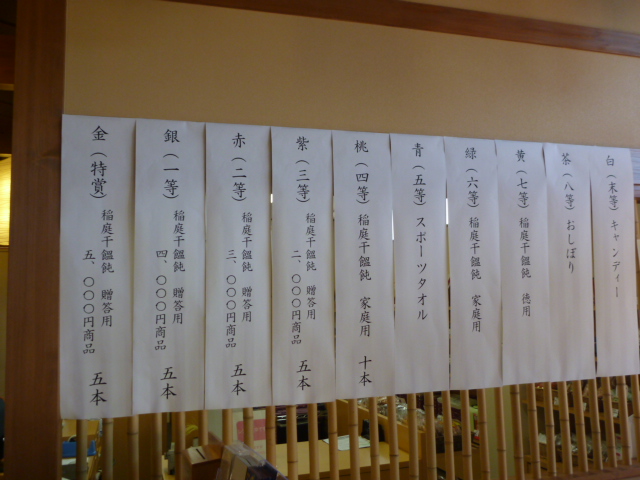 金（特賞）
稲庭干饂飩 贈答用
五、〇〇〇円商品
五本
銀（一等）
稲庭干饂飩 贈答用
四、〇〇〇円商品
五本
赤（二等）
稲庭干饂飩 贈答用
三、〇〇〇円商品
五本
紫（三等）
稲庭干饂飩 贈答用
二、〇〇〇円商品
五本
桃（四等） 稲庭干饂飩 家庭用 十本
青（五等） スポーツタオル
緑（六等） 稲庭干饂飩 家庭用
黄（七等） 稲庭干饂飩 徳用
茶（八等） おしぼり
白（末等） キャンディー